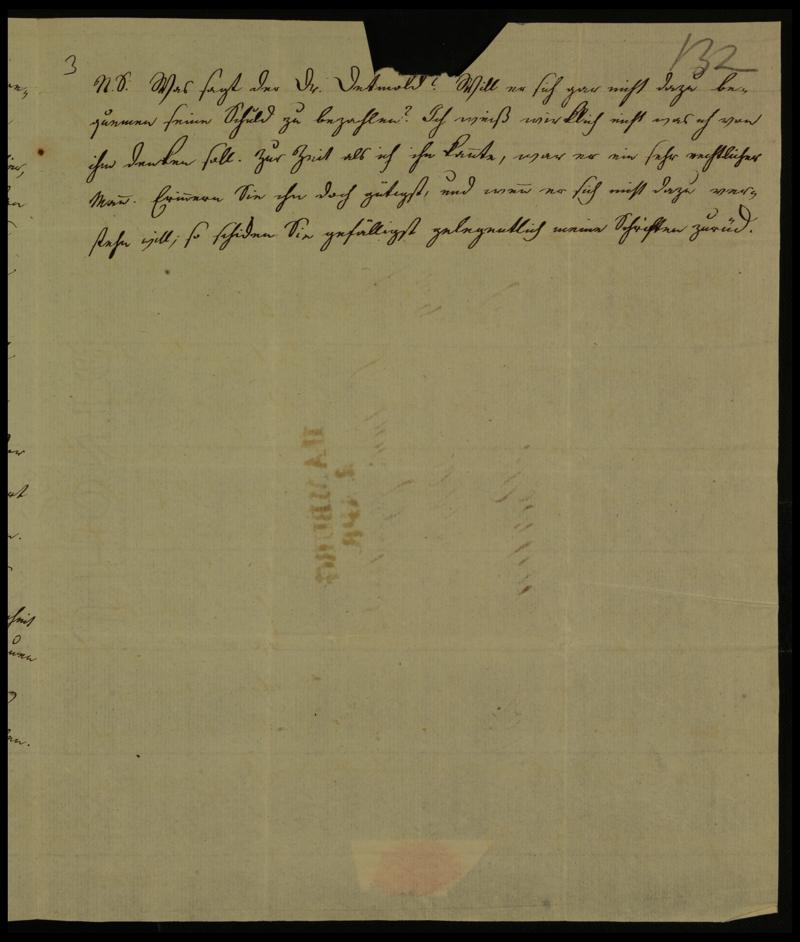 3
132
N.S. Was sagt der Dr. Detmold? Will er sich gar nicht dazu be-
quemen seine Schuld zu bezahlen? Ich weiß wirklich nicht was ich von
ihm denken soll. Zur Zeit als ich ihn kan̄te, war er ein sehr rechtlicher
Man̄. Erin̄ern Sie ihn doch gütigst, und wen̄ er sich nicht dazu ver-
stehn will, so schicken Sie gefälligst gelegentlich meine Schriften zurück.
HAMBURG